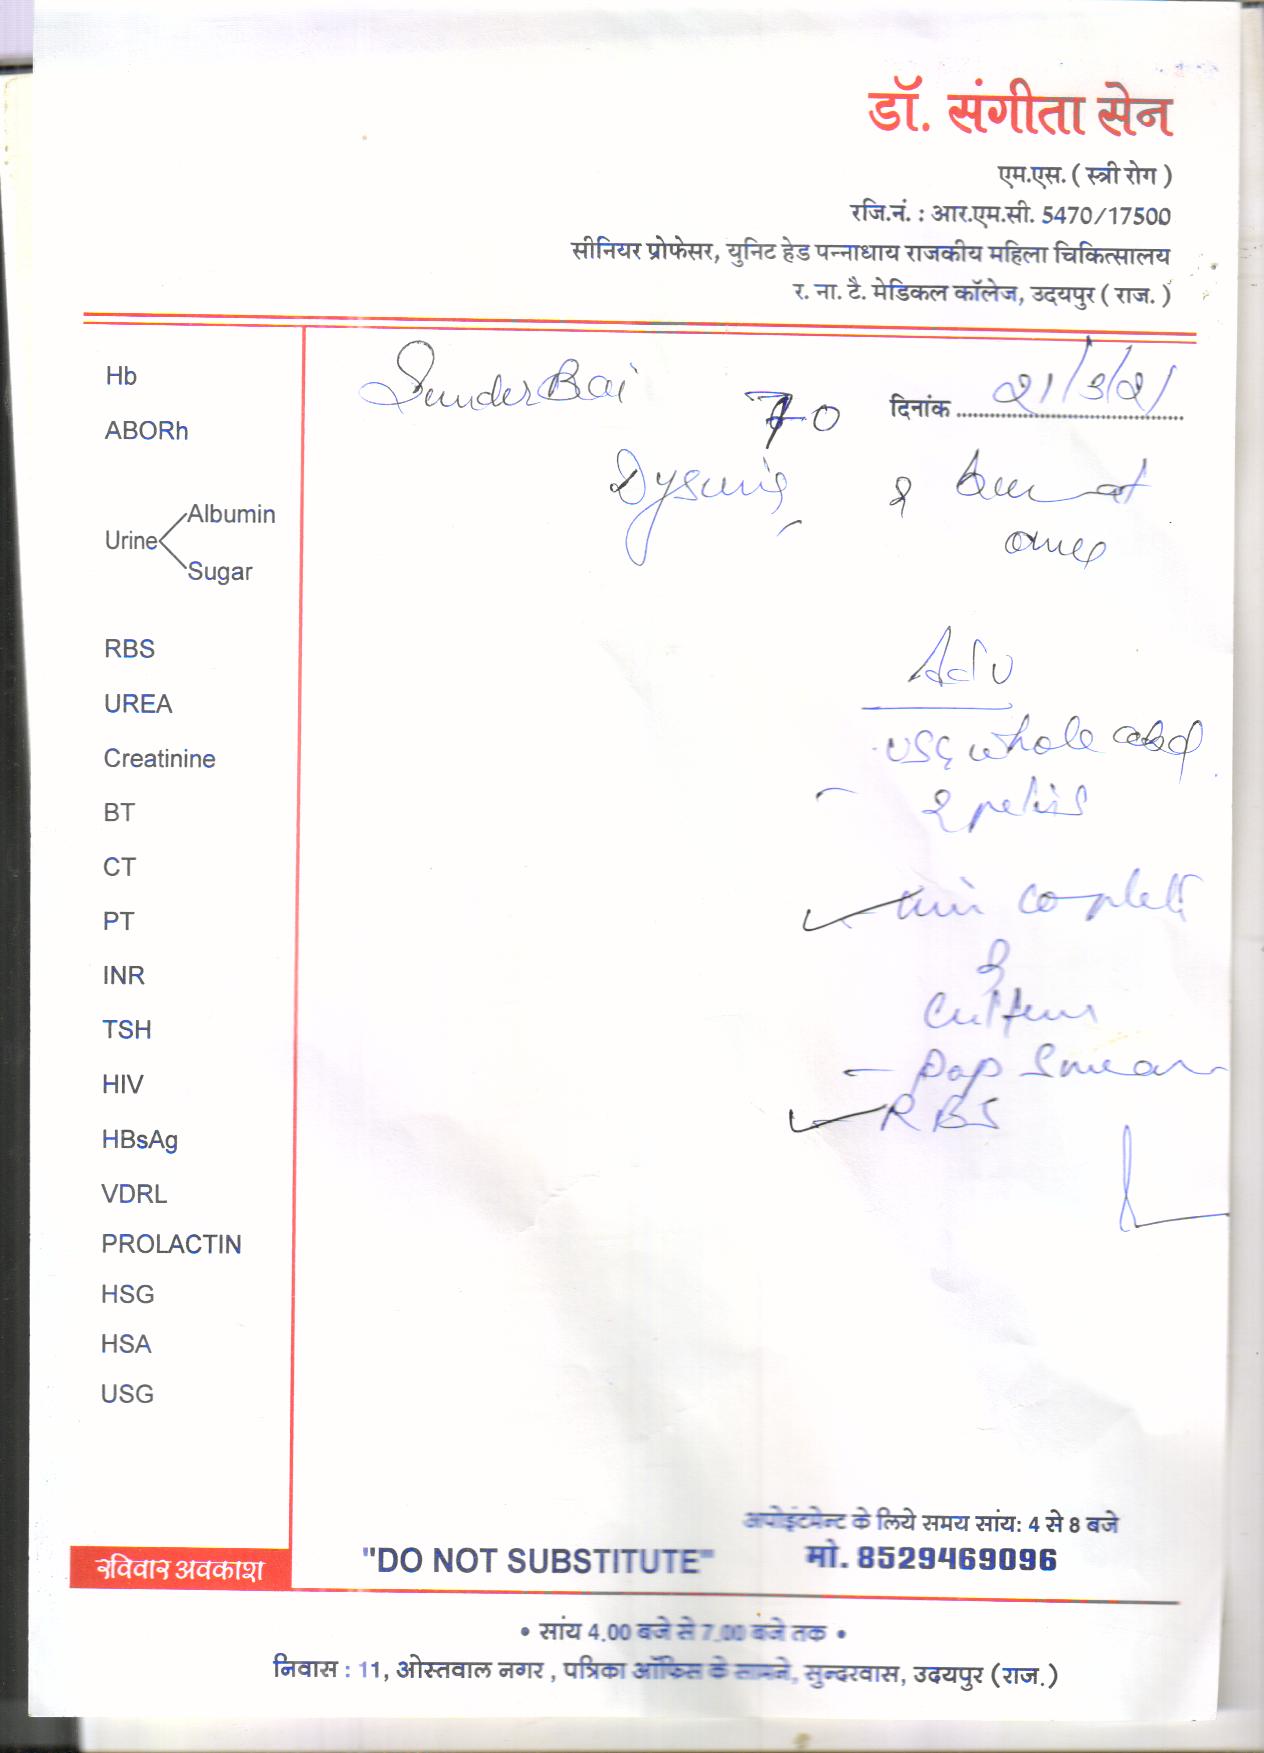 डॉ. संगीता सेन
एम.एस. ( स्त्री रोग )
रजि.नं. : आर.एम.सी. 5470/17500
सीनियर प्रोफेसर, युनिट हेड पन्नाधाय राजकीय महिला चिकित्सालय
र. ना. टै. मेडिकल कॉलेज, उदयपुर ( राज. )
Sunder Bai
70
दिनांक 21/3/21
Hb
ABORh
Urine
Albumin
Sugar
RBS
UREA
Creatinine
BT
CT
PT
INR
TSH
HIV
HBsAg
VDRL
PROLACTIN
HSG
HSA
USG
&
Adv
USG whole abd
& pelvis
&
Pap Smear
RBS
अपोइंटमेन्ट के लिये समय सांय: 4 से 8 बजे
रविवार अवकाश
"DO NOT SUBSTITUTE"
मो. 8529469096
• सांय 4.00 बजे से 7.00 बजे तक •
निवास : 11, ओस्तवाल नगर , पत्रिका ऑफिस के सामने, सुन्दरवास, उदयपुर (राज.)